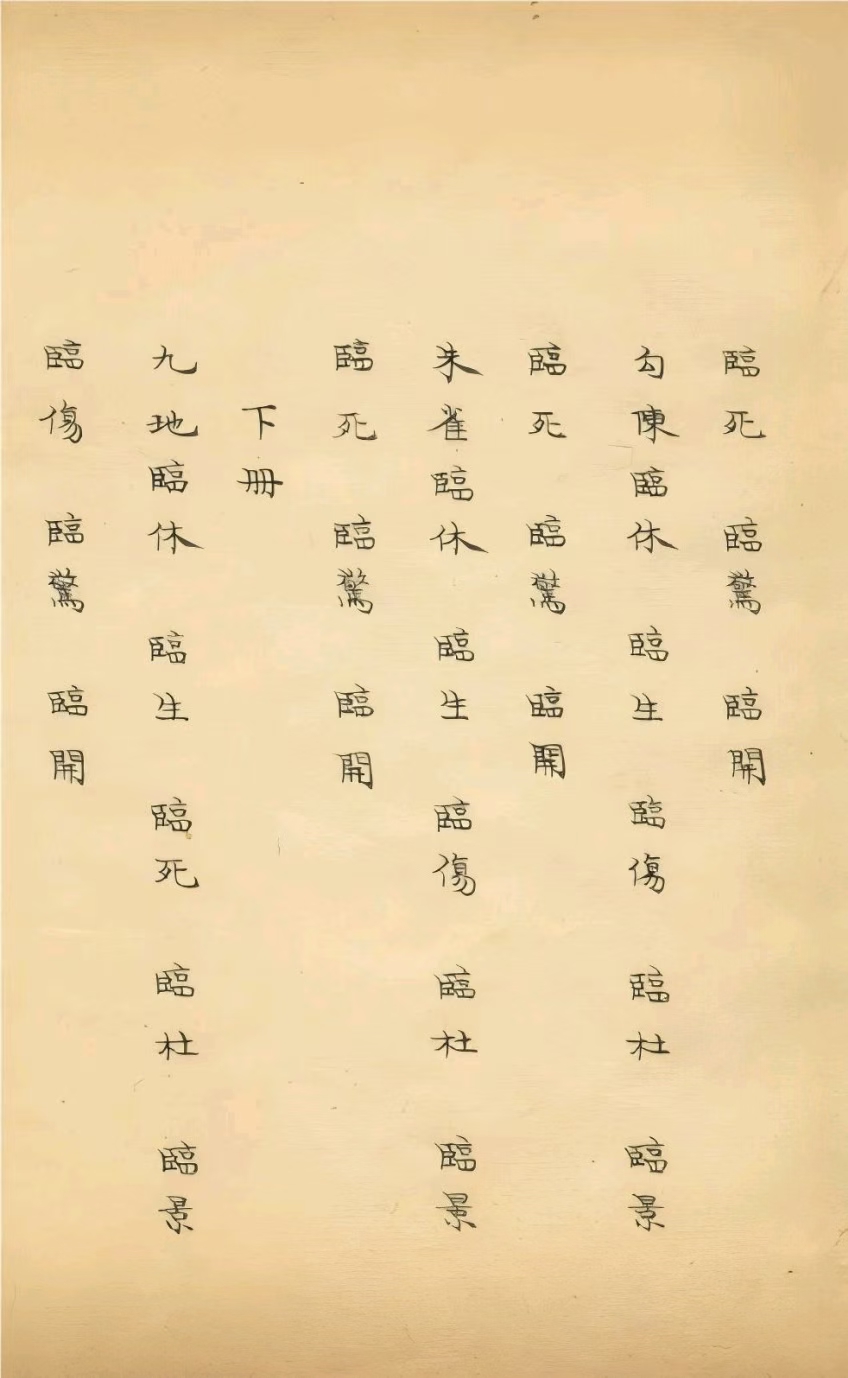 臨死　臨驚　臨開
勾陳臨休　臨生　臨傷　臨杜　臨景
臨死　臨驚　臨開
朱雀臨休　臨生　臨傷　臨杜　臨景
臨死　臨驚　臨開
下冊
九地臨休　臨生　臨死　臨杜　臨景
臨傷　臨驚　臨開